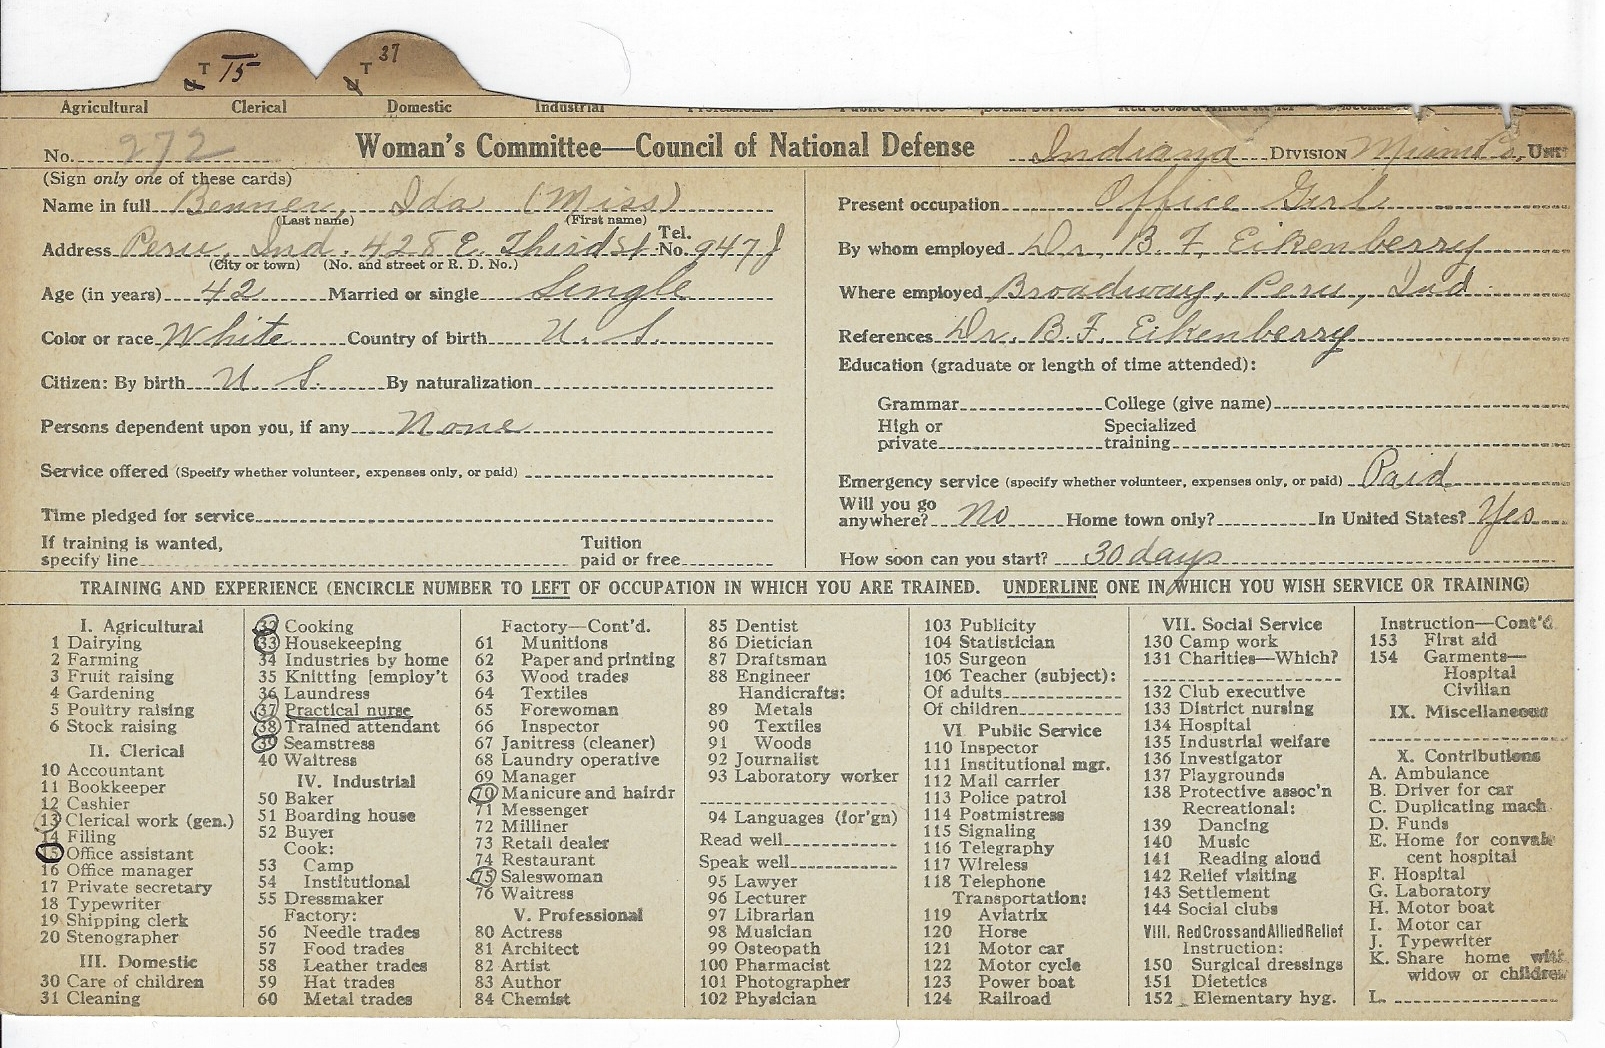 T 15 T 37
Agricultural Clerical Domestic Industrial
No. 272 Woman's Committee—Council of National Defense Indiana DIVISION Miami Co. UNIT
(Sign only one of these cards)
Name in full Benner, Ida (Miss)
(Last name) (First name)
Address Peru, Ind. 428 E. Third St Tel. No. 947 J
(City or town) (No. and street or R. D. No.)
Age (in years) 42 Married or single Single
Color or race White Country of birth U. S.
Citizen: By birth U. S. By naturalization
Persons dependent upon you, if any None
Service offered (Specify whether volunteer, expenses only, or paid)
Time pledged for service
If training is wanted, specify line Tuition paid or free
Present occupation Office Girl
By whom employed Dr. B. F. Eikenberry
Where employed Broadway, Peru, Ind
References Dr. B. F. Eikenberry
Education (graduate or length of time attended):
Grammar College (give name)
High or private Specialized training
Emergency service (specify whether volunteer, expenses only, or paid) Paid
Will you go anywhere? No Home town only? In United States? Yes
How soon can you start? 30 days
TRAINING AND EXPERIENCE (ENCIRCLE NUMBER TO LEFT OF OCCUPATION IN WHICH YOU ARE TRAINED. UNDERLINE ONE IN WHICH YOU WISH SERVICE OR TRAINING)
I. Agricultural
1 Dairying
2 Farming
3 Fruit raising
4 Gardening
5 Poultry raising
6 Stock raising
II. Clerical
10 Accountant
11 Bookkeeper
12 Cashier
13 Clerical work (gen.)
14 Filing
15 Office assistant
16 Office manager
17 Private secretary
18 Typewriter
19 Shipping clerk
20 Stenographer
III. Domestic
30 Care of children
31 Cleaning
32 Cooking
33 Housekeeping
34 Industries by home
35 Knitting [employ't
36 Laundress
37 Practical nurse
38 Trained attendant
39 Seamstress
40 Waitress
IV. Industrial
50 Baker
51 Boarding house
52 Buyer
Cook:
53 Camp
54 Institutional
55 Dressmaker
Factory:
56 Needle trades
57 Food trades
58 Leather trades
59 Hat trades
60 Metal trades
Factory—Cont'd.
61 Munitions
62 Paper and printing
63 Wood trades
64 Textiles
65 Forewoman
66 Inspector
67 Janitress (cleaner)
68 Laundry operative
69 Manager
70 Manicure and hairdr
71 Messenger
72 Milliner
73 Retail dealer
74 Restaurant
75 Saleswoman
76 Waitress
V. Professional
80 Actress
81 Architect
82 Artist
83 Author
84 Chemist
85 Dentist
86 Dietician
87 Draftsman
88 Engineer
Handicrafts:
89 Metals
90 Textiles
91 Woods
92 Journalist
93 Laboratory worker
94 Languages (for'gn)
Read well
Speak well
95 Lawyer
96 Lecturer
97 Librarian
98 Musician
99 Osteopath
100 Pharmacist
101 Photographer
102 Physician
103 Publicity
104 Statistician
105 Surgeon
106 Teacher (subject):
Of adults
Of children
VI Public Service
110 Inspector
111 Institutional mgr.
112 Mail carrier
113 Police patrol
114 Postmistress
115 Signaling
116 Telegraphy
117 Wireless
118 Telephone
Transportation:
119 Aviatrix
120 Horse
121 Motor car
122 Motor cycle
123 Power boat
124 Railroad
VII. Social Service
130 Camp work
131 Charities—Which?
132 Club executive
133 District nursing
134 Hospital
135 Industrial welfare
136 Investigator
137 Playgrounds
138 Protective assoc'n
Recreational:
139 Dancing
140 Music
141 Reading aloud
142 Relief visiting
143 Settlement
144 Social clubs
VIII. Red Cross and Allied Relief
Instruction:
150 Surgical dressings
151 Dietetics
152 Elementary hyg.
Instruction—Cont'd.
153 First aid
154 Garments—
Hospital
Civilian
IX. Miscellaneous
X. Contributions
A. Ambulance
B. Driver for car
C. Duplicating mach
D. Funds
E. Home for convales
cent hospital
F. Hospital
G. Laboratory
H. Motor boat
I. Motor car
J. Typewriter
K. Share home with
widow or children
L.